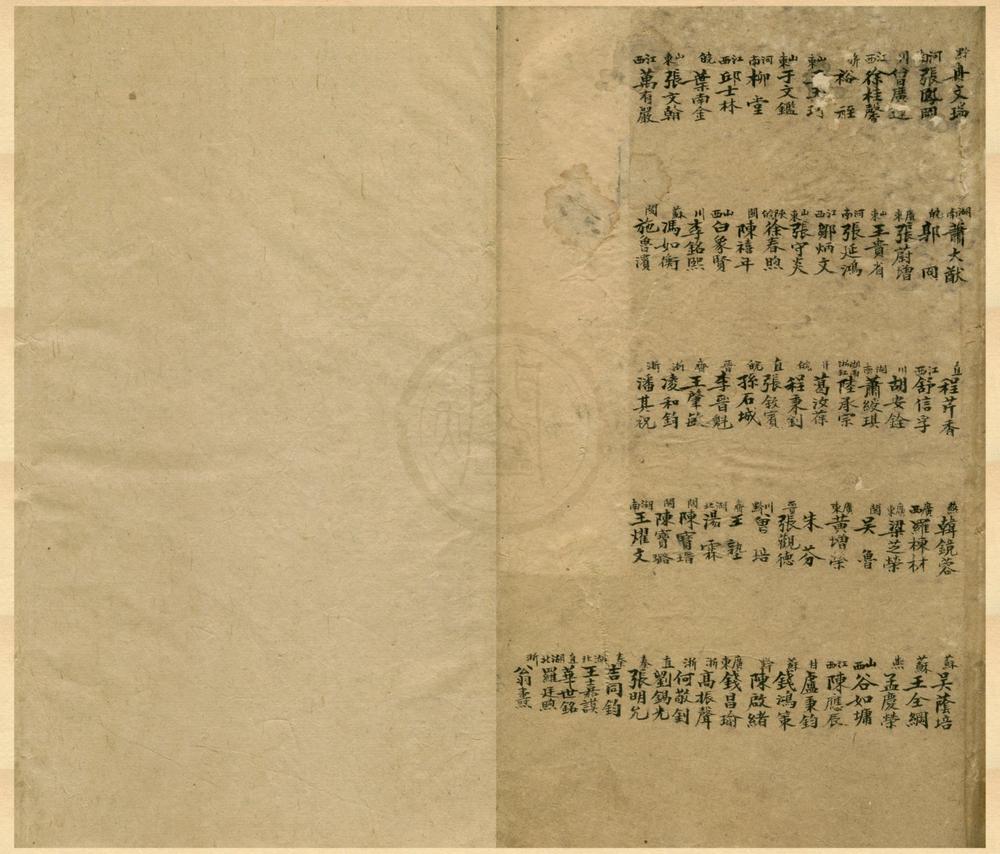 黔 冉文瑞
河南 張鳳岡
川 曾廣
江西 徐桂馨
裕經
山東 王
山東 于文鑑
河南 柳堂
江西 邱士林
皖 葉南金
山東 張文翰
江西 萬有嚴
湖南 蕭大猷
皖 郭同
廣東 張蔚增
山東 王貴省
河南 張延鴻
江西 鄒炳文
山東 張守炎
徐春煦
閩 陳禧年
山西 白象賢
川 李銘熙
蘇 馮如衡
閩 施魯濱
直 程芹香
江西 舒信孚
川 胡安銓
湖南 蕭綬琪
陸承宗
甘 葛汝葆
皖 程秉釗
直 張敘賓
皖 孫石城
晉 李晉魁
齊 王肇敏
浙 凌和鈞
浙 潘其祝
燕 韓鏡蓉
廣西 羅棟材
廣東 梁芝榮
閩 吳魯
廣東 黃增榮
朱芬
晉 張觀德
川黔 曾培
齊 王塾
湖北 湯霖
閩 陳寶瑨
閩 陳寶璐
湖南 王燿文
蘇 吳蔭培
蘇 王全綱
燕 孟慶榮
山西 谷如墉
江西 陳應辰
甘 盧秉鈞
蘇 錢鴻策
黔 陳啟緒
廣東 錢昌瑜
浙 高振聲
浙 何敬釗
直 劉錫光
秦 張明允
秦 吉同鈞
湖北 王嘉謨
直 華世銘
湖北 羅廷煦
浙 翁燾